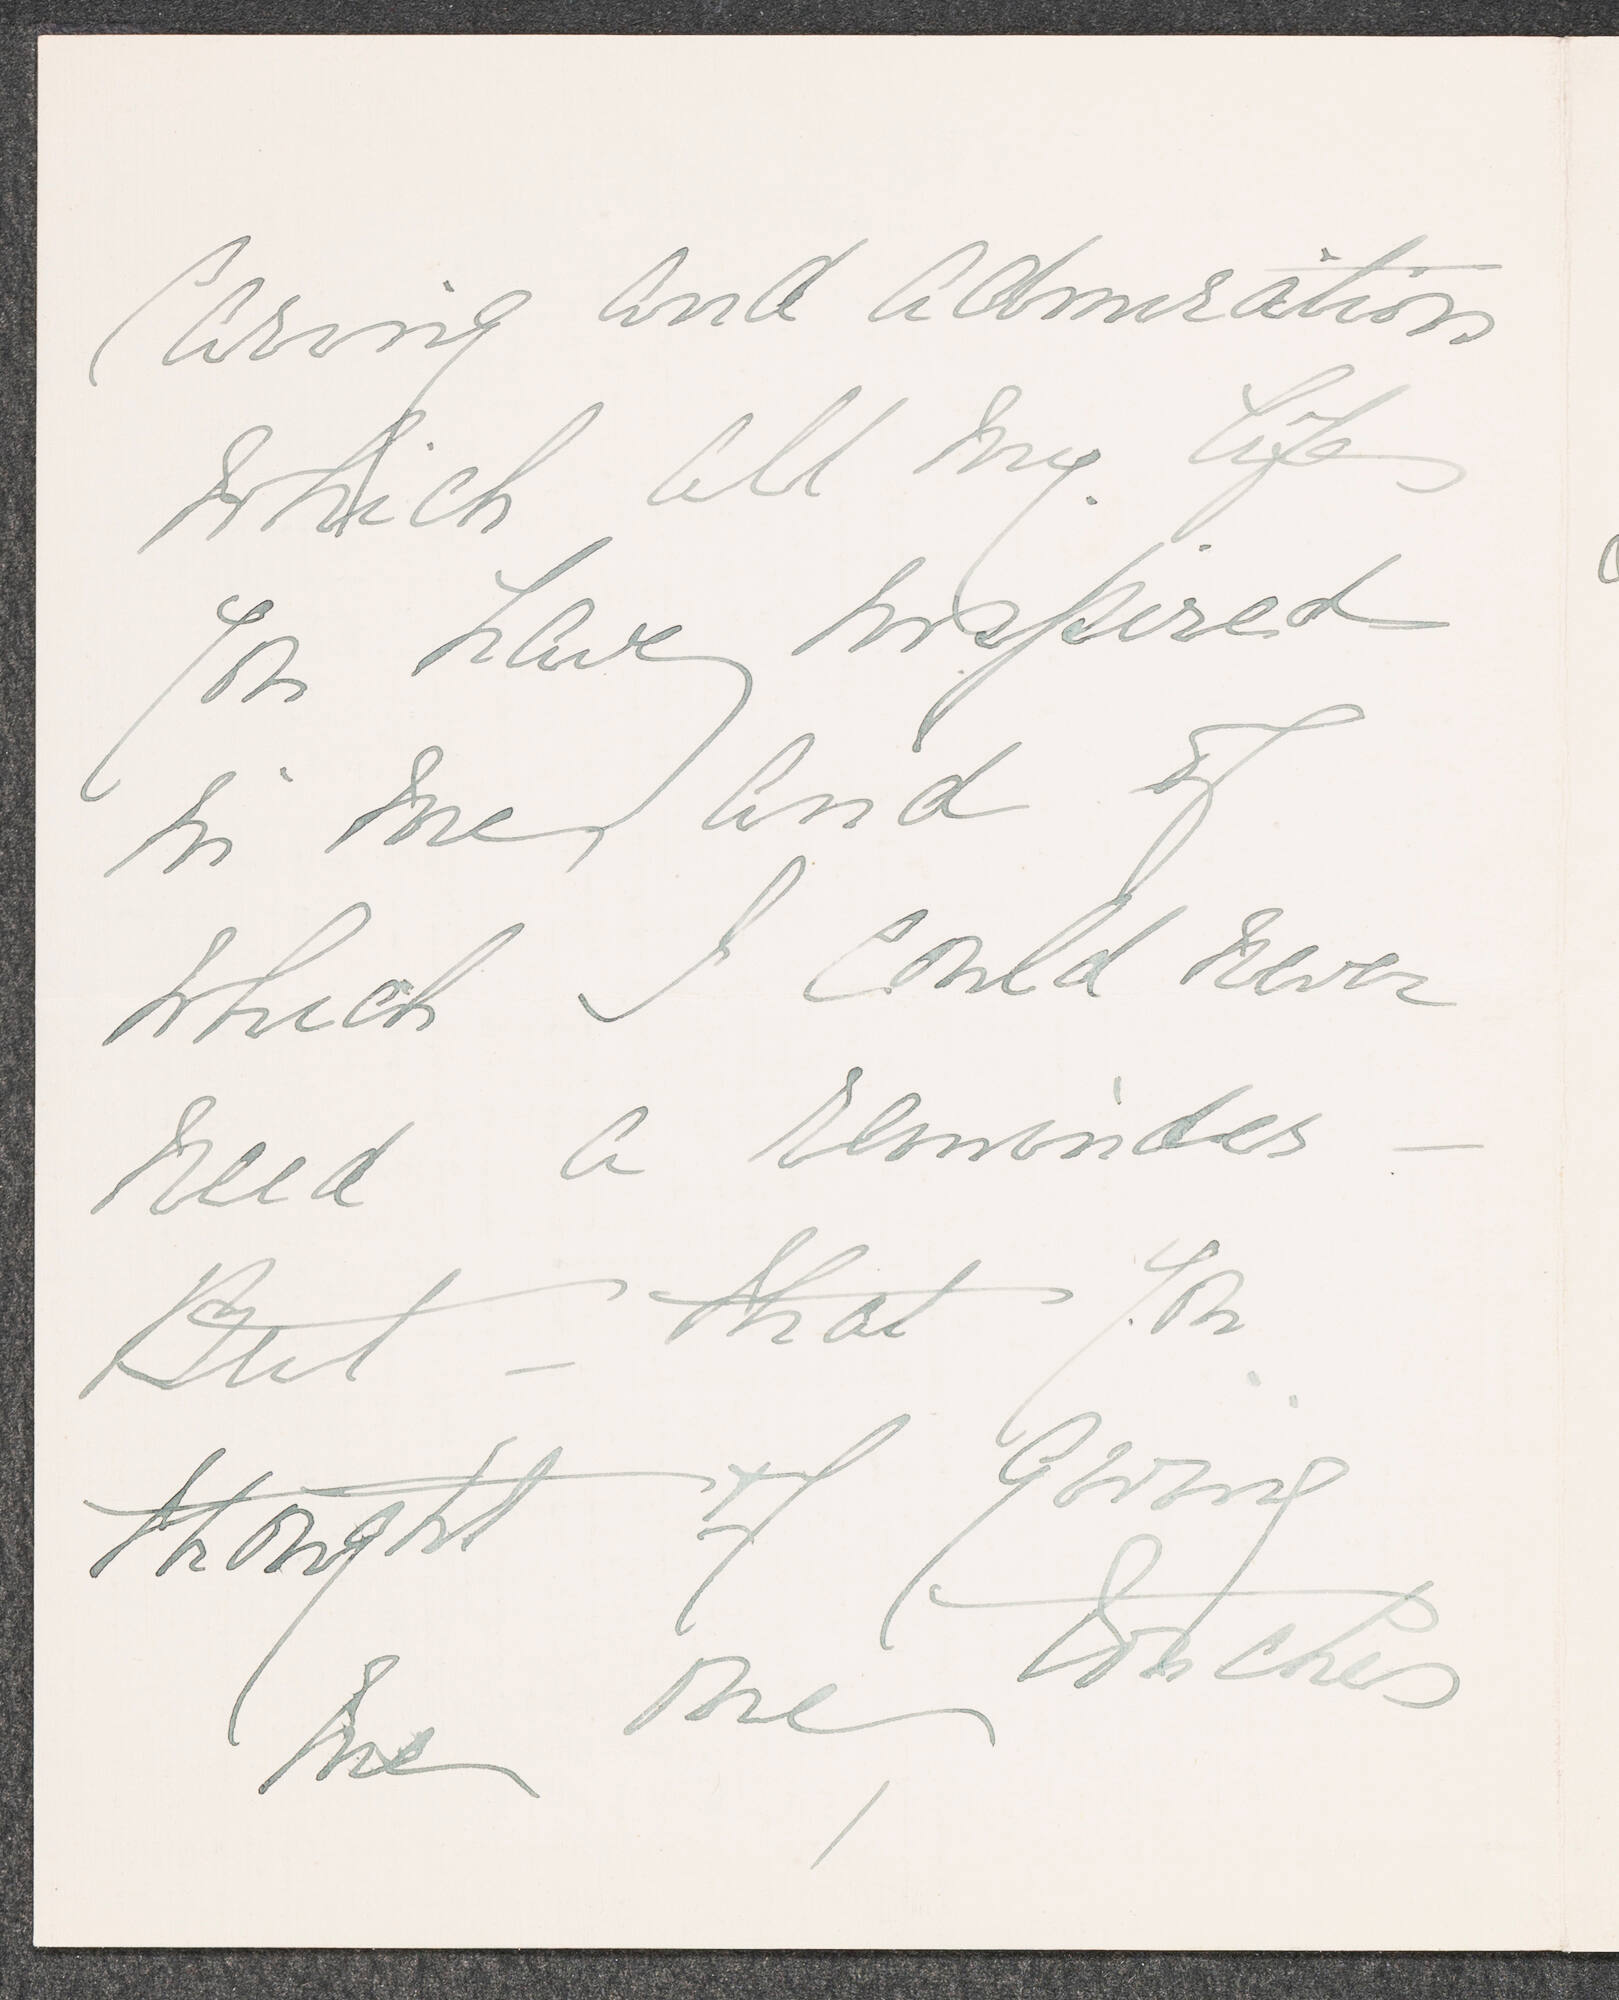 caring and admiration
which all my life
you have inspired
in me, and of
which I could never
need a reminder —
But — that you
thought of giving
me one, touches